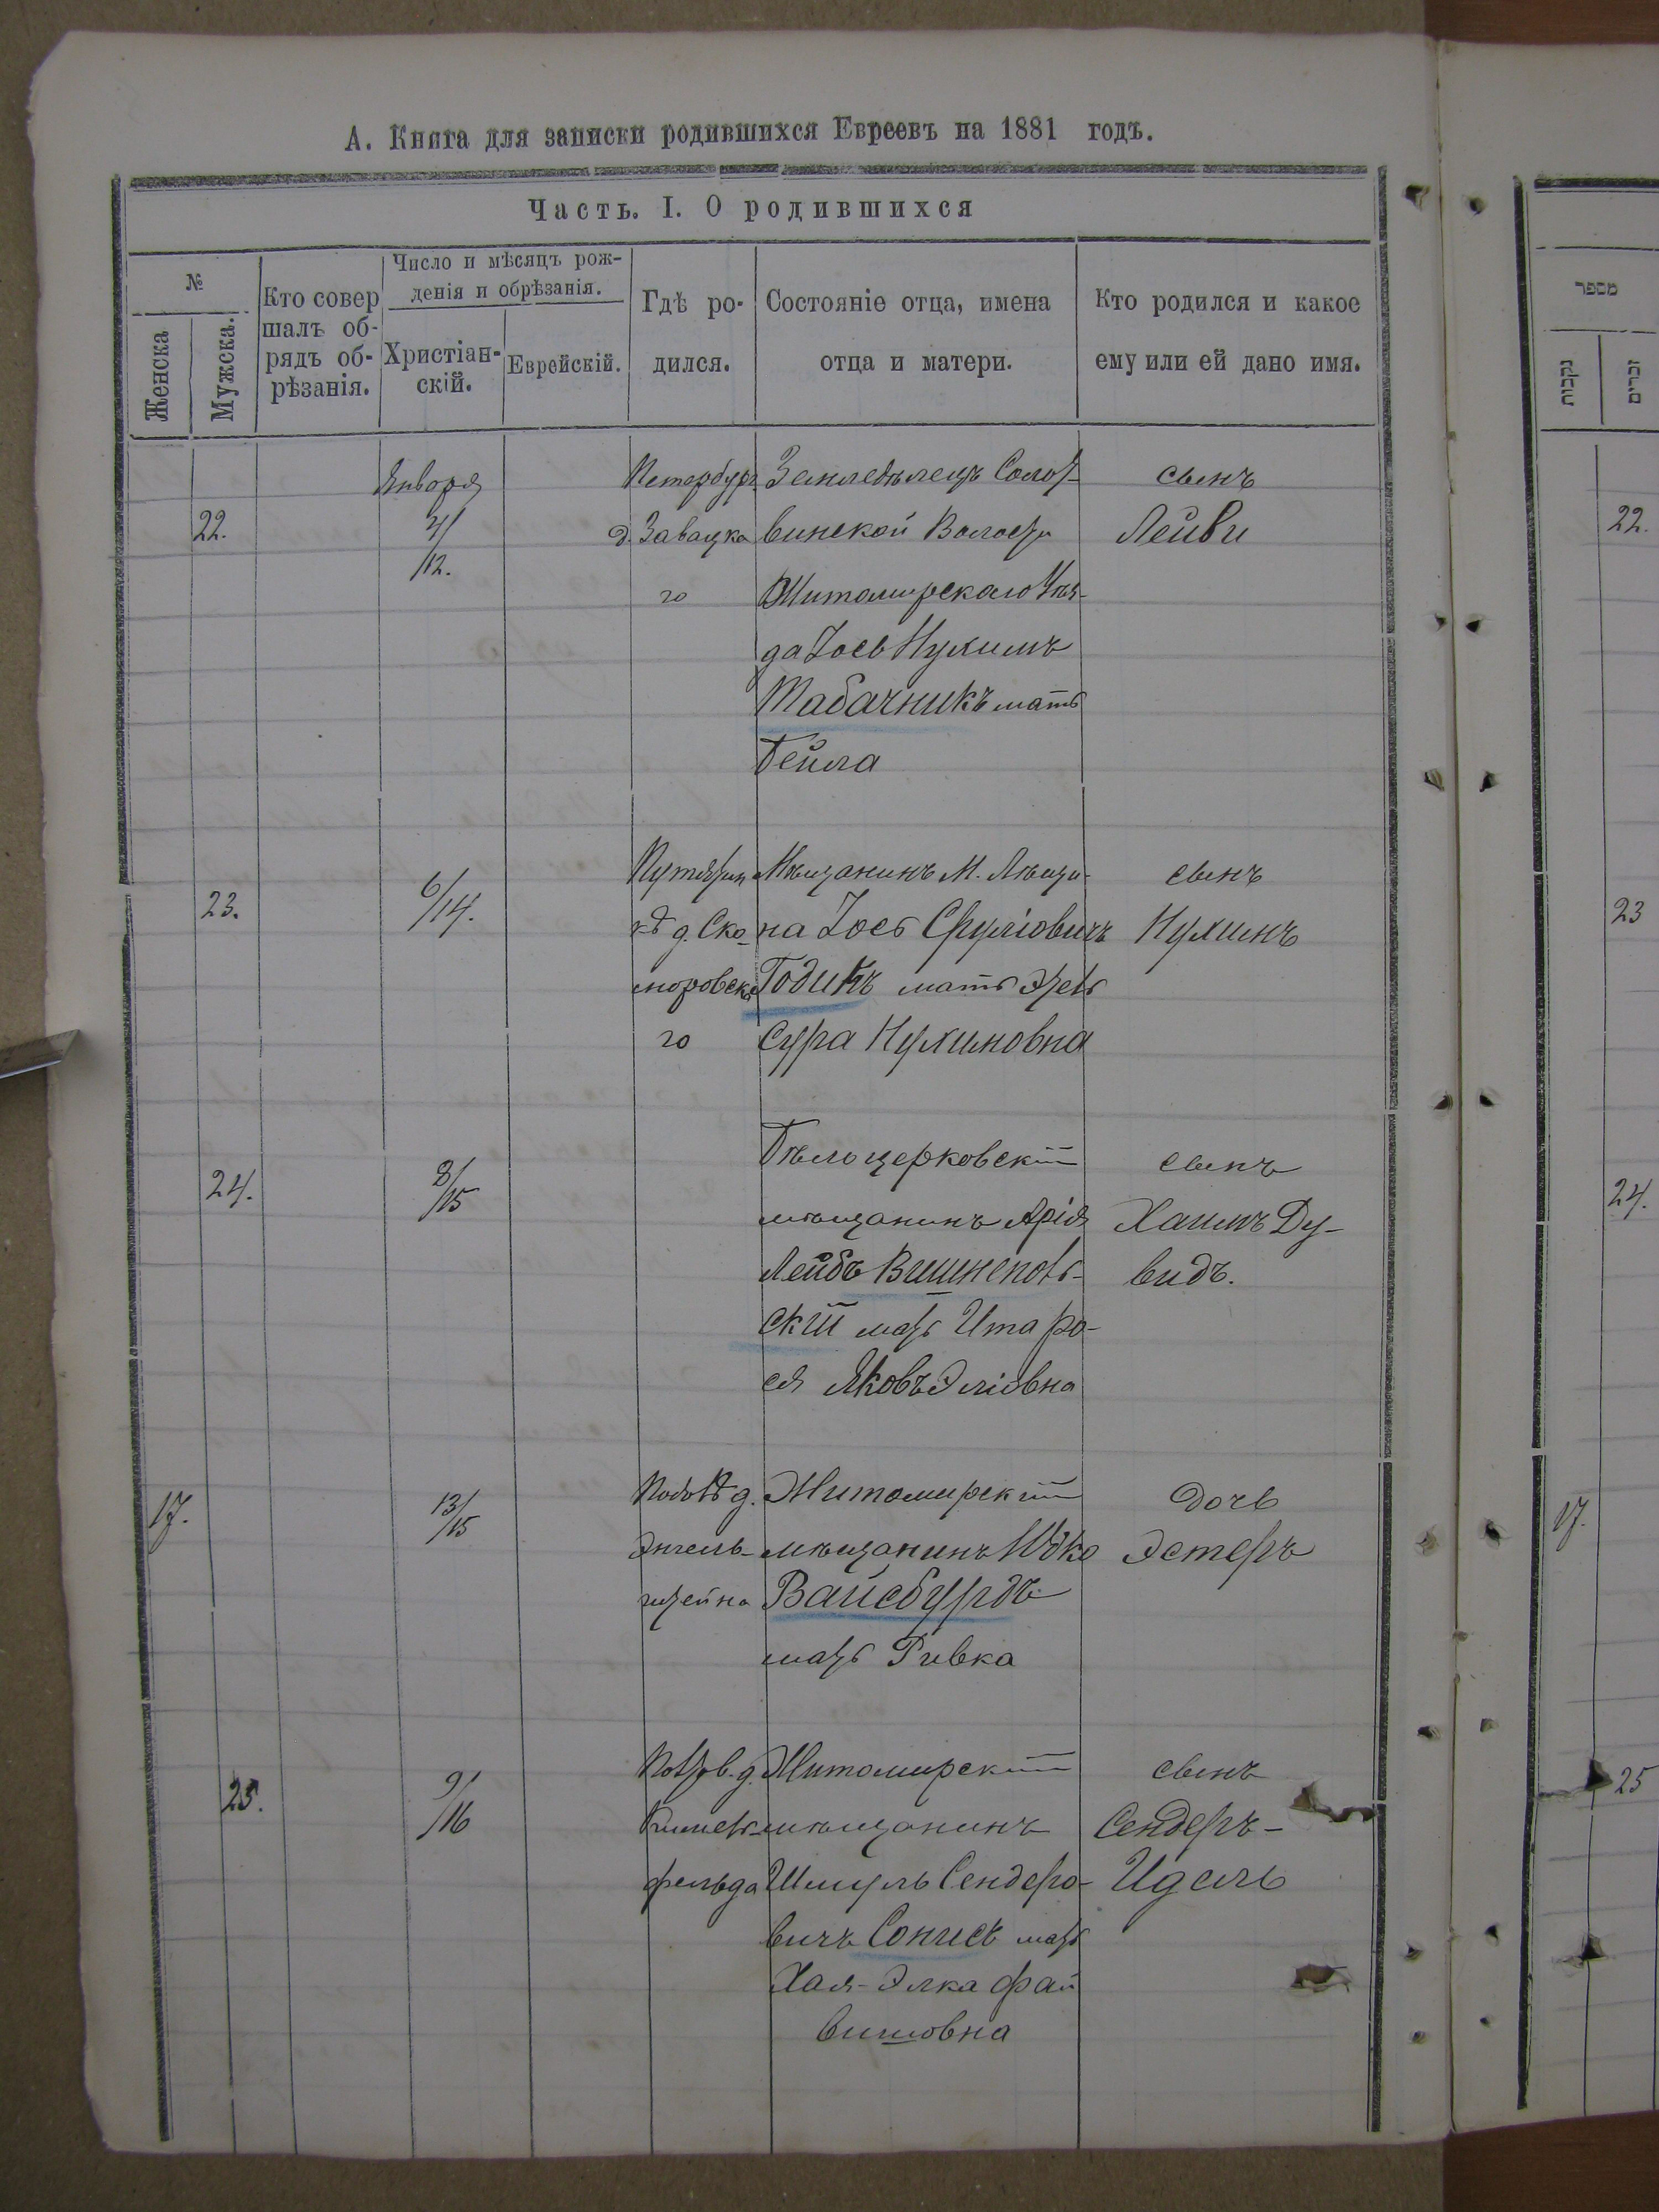 А. Книга для записки родившихся Евреевъ на 1881 годъ.
Часть. I. О родившихся
№
Женска
Мужска.
Кто совер
шалъ об-
рядъ об-
рѣзанія.
Число и мѣсяцъ рож-
денія и обрѣзанія.
Христіан-
скій.
Еврейскій.
Гдѣ ро-
дился.
Состояніе отца, имена
отца и матери.
Кто родился и какое
ему или ей дано имя.
22.
Января
4/
/12.
Петербург
д. Завацка
го
Земледѣлецъ Солот-
винской Волости
Житомирского Уѣз-
да Іось Нухимъ
Табачникъ мать
Бейла
сынъ
Лейви
23.
6/
/14.
д. Ско-
моровска
го
Мѣщанинъ М. Лѣщи-
на Іось Сруліовичъ
Годикъ мать
Сура Нухимовна
сынъ
Нухимъ
24.
8/
/15
Бѣлоцерковскій
мѣщанинъ Арія
Лейбъ Вишнепол-
скій мать Ита Ро-
ся Яковъ Эліовна
сынъ
Хаимъ Ду-
видъ.
17.
13/
/15
д.
Энгель-
штейна
Житомирскій
мѣщанинъ Юдко
Вайсбурдъ
мать Ривка
дочь
Эстеръ
25.
9/
/16
д.
фельда
Житомирскій
мѣщанинъ
Шмуль Сендеро-
вичъ Сонисъ мать
Хая-Элка Фай
вишовна
сынъ
Сендеръ-
Идель
מספר
נקבות
זכרים
22.
23
24.
17.
25